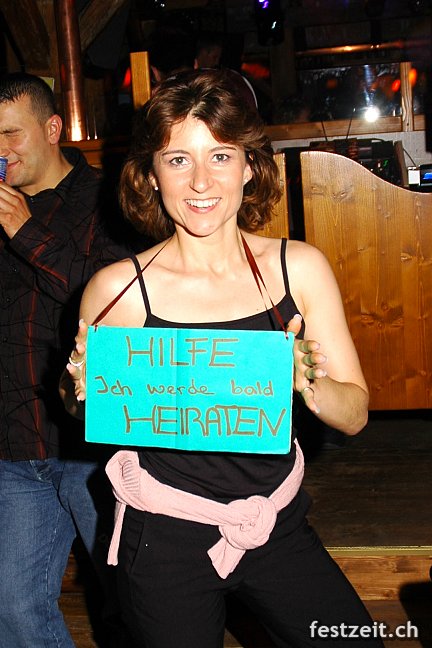 HILFE
Ich werde bald
HEIRATEN
festzeit.ch